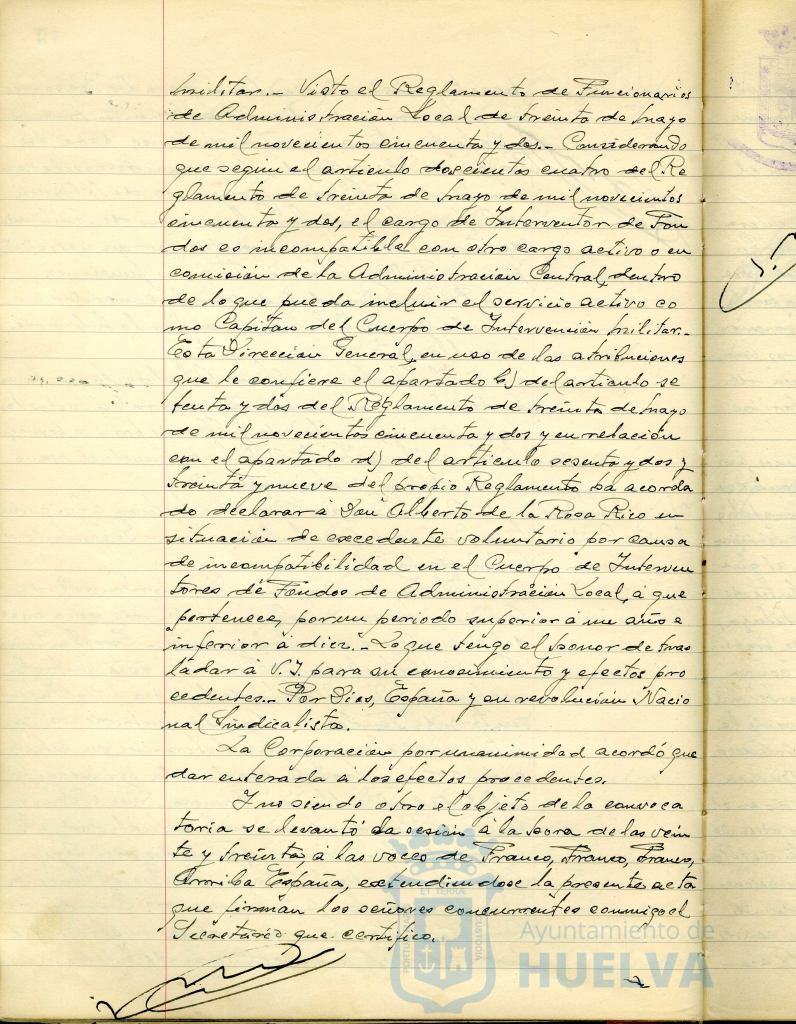 militar.- Visto el Reglamento de Funcionarios
de Administración Local de treinta de mayo
de mil novecientos cincuenta y dos.- Considerando
que según el artículo doscientos cuatro del Re
glamento de treinta de mayo de mil novecientos
cincuenta y dos, el cargo de Interventor de Fon
dos es incompatible con otro cargo activo o en
comisión de la Administración Central, dentro
de lo que pueda incluir el servicio activo co
mo Capitán del Cuerpo de Intervención militar.-
Esta Dirección General, en uso de las atribuciones
que le confiere el apartado b) del artículo se
tenta y dos del Reglamento de treinta de mayo
de mil novecientos cincuenta y dos y en relación
con el apartado d) del artículo sesenta y dos y
treinta y nueve del propio Reglamento ha acorda
do declarar á Don Alberto de la Rosa Rico en
situación de excedente voluntario por causa
de incompatibilidad en el Cuerpo de Interven
tores de Fondos de Administración Local, á que
pertenece, por un periodo superior á un año e
inferior á diez.- Lo que tengo el honor de tras
ladar á V.I. para su conocimiento y efectos pro
cedentes.- Por Dios, España y su revolución Nacio
nal Sindicalista.
La Corporación por unanimidad acordó que
dar enterada á los efectos procedentes.
Y no siendo otro el objeto de la convoca
toria se levantó la sesión á la hora de las vein
te y treinta, á las voces de Franco, Franco, Franco,
Arriba España, extendiendose la presente acta
que firman los señores concurrentes conmigo el
Secretario que certifico.
Ayuntamiento de
HUELVA